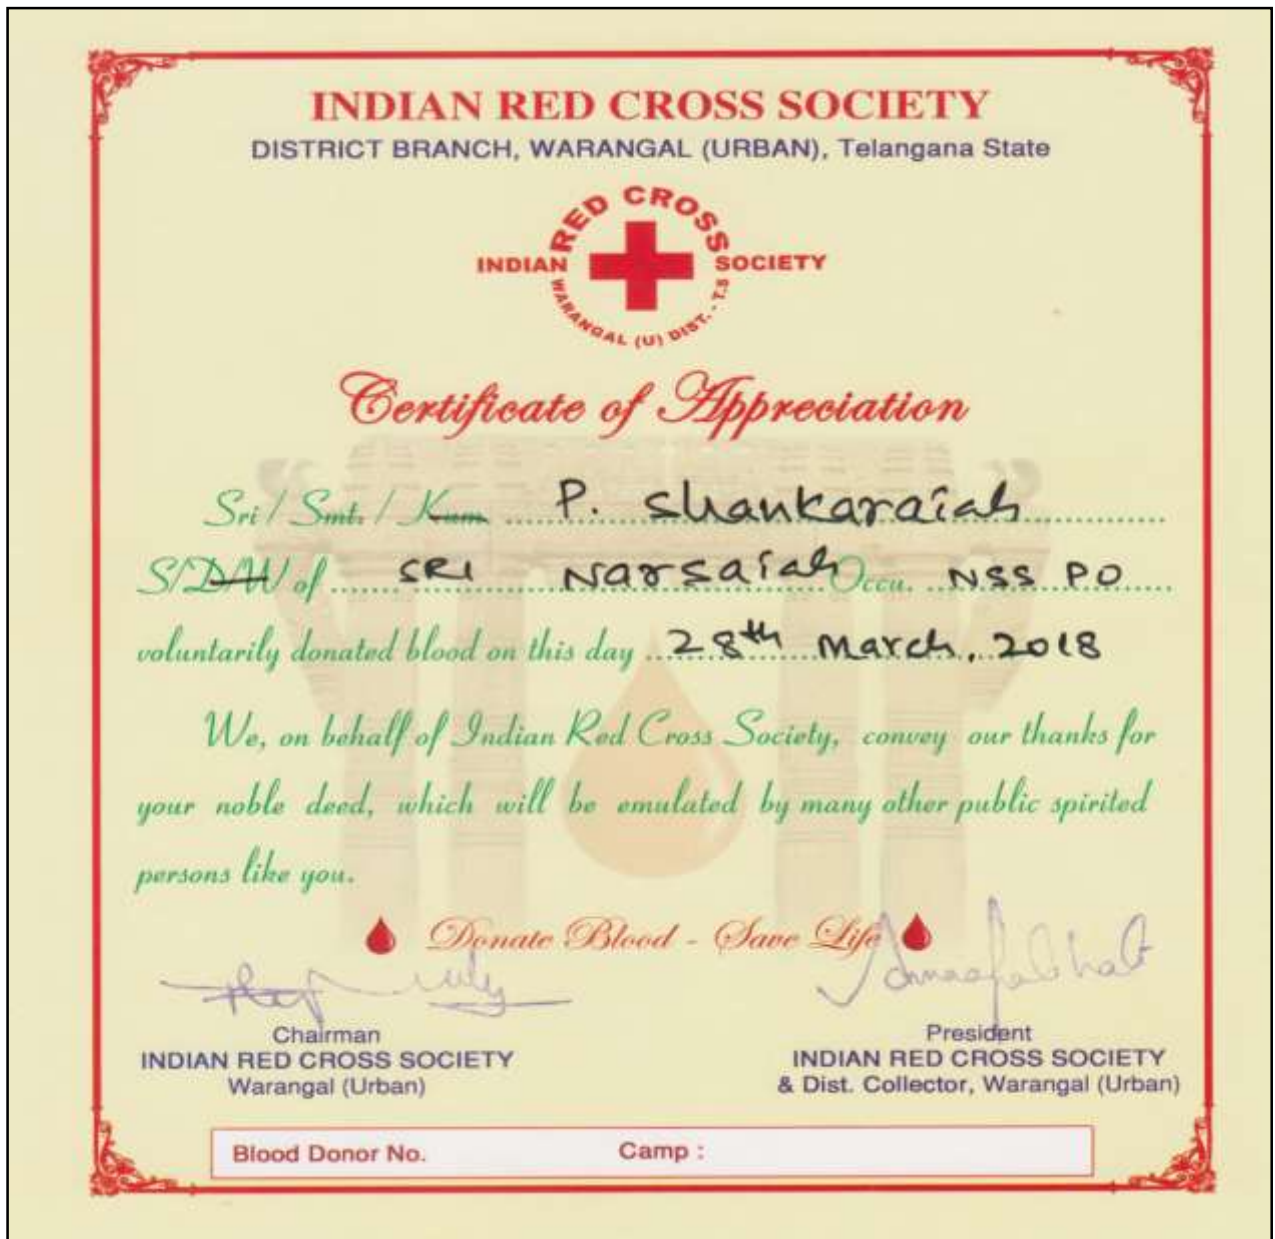 INDIAN RED CROSS SOCIETY
DISTRICT BRANCH, WARANGAL (URBAN), Telangana State
RED CROSS
INDIAN SOCIETY
WARANGAL (U) DIST. - T.S
Certificate of Appreciation
Sri / Smt. / Kum P. Shankaraiah
S/D/W of SRI Narsaiah Occu. NSS PO
voluntarily donated blood on this day 28th March, 2018
We, on behalf of Indian Red Cross Society, convey our thanks for
your noble deed, which will be emulated by many other public spirited
persons like you.
Donate Blood - Save Life
Chairman
INDIAN RED CROSS SOCIETY
Warangal (Urban)
President
INDIAN RED CROSS SOCIETY
& Dist. Collector, Warangal (Urban)
Blood Donor No. Camp :